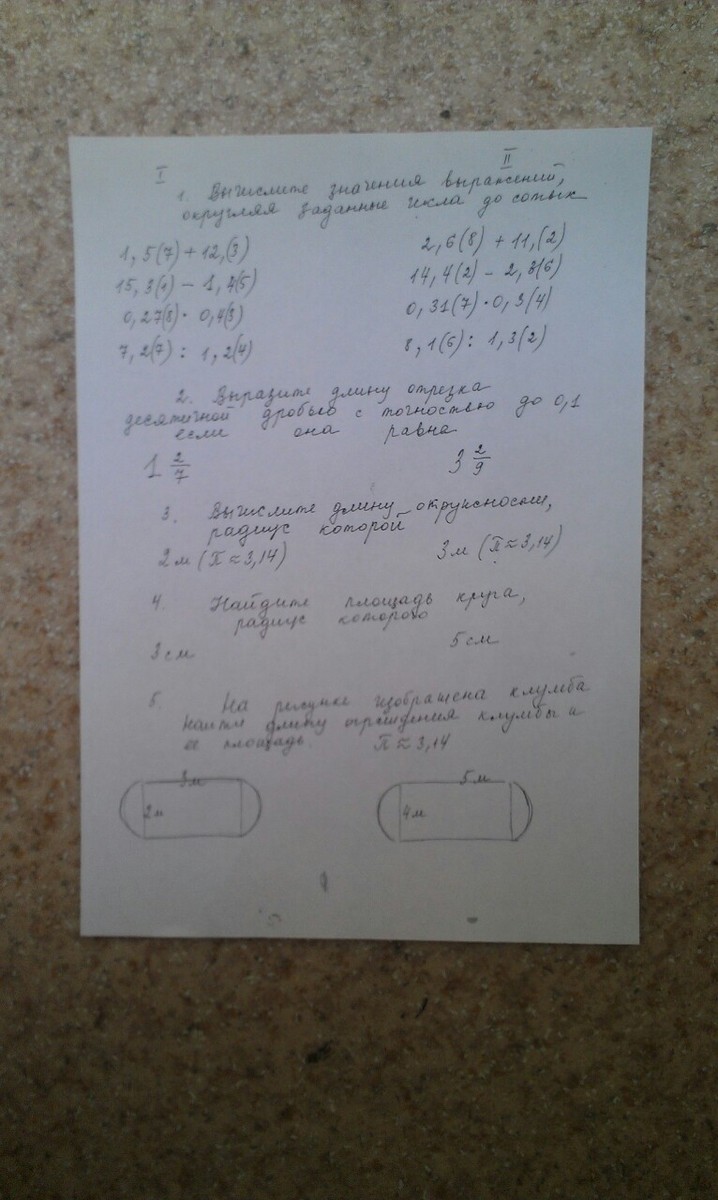 I II
1. Вычислите значения выражений,
округляя заданные числа до сотых
1,5(7) + 12,(3) 2,6(8) + 11,(2)
15,3(1) - 1,4(5) 14,4(2) - 2,8(6)
0,27(8) · 0,4(3) 0,31(7) · 0,3(4)
7,2(7) : 1,2(4) 8,1(6) : 1,3(2)
2. Выразите длину отрезка
десятичной дробью с точностью до 0,1
если она равна
1 2/7 3 2/9
3. Вычислите длину окружности,
радиус которой
2м (π≈3,14) 3м (π≈3,14)
4. Найдите площадь круга,
радиус которого
3см 5см
5. На рисунке изображена клумба
Найти длину ограждения клумбы и
ее площадь. π≈3,14
3м 5м
2м 4м